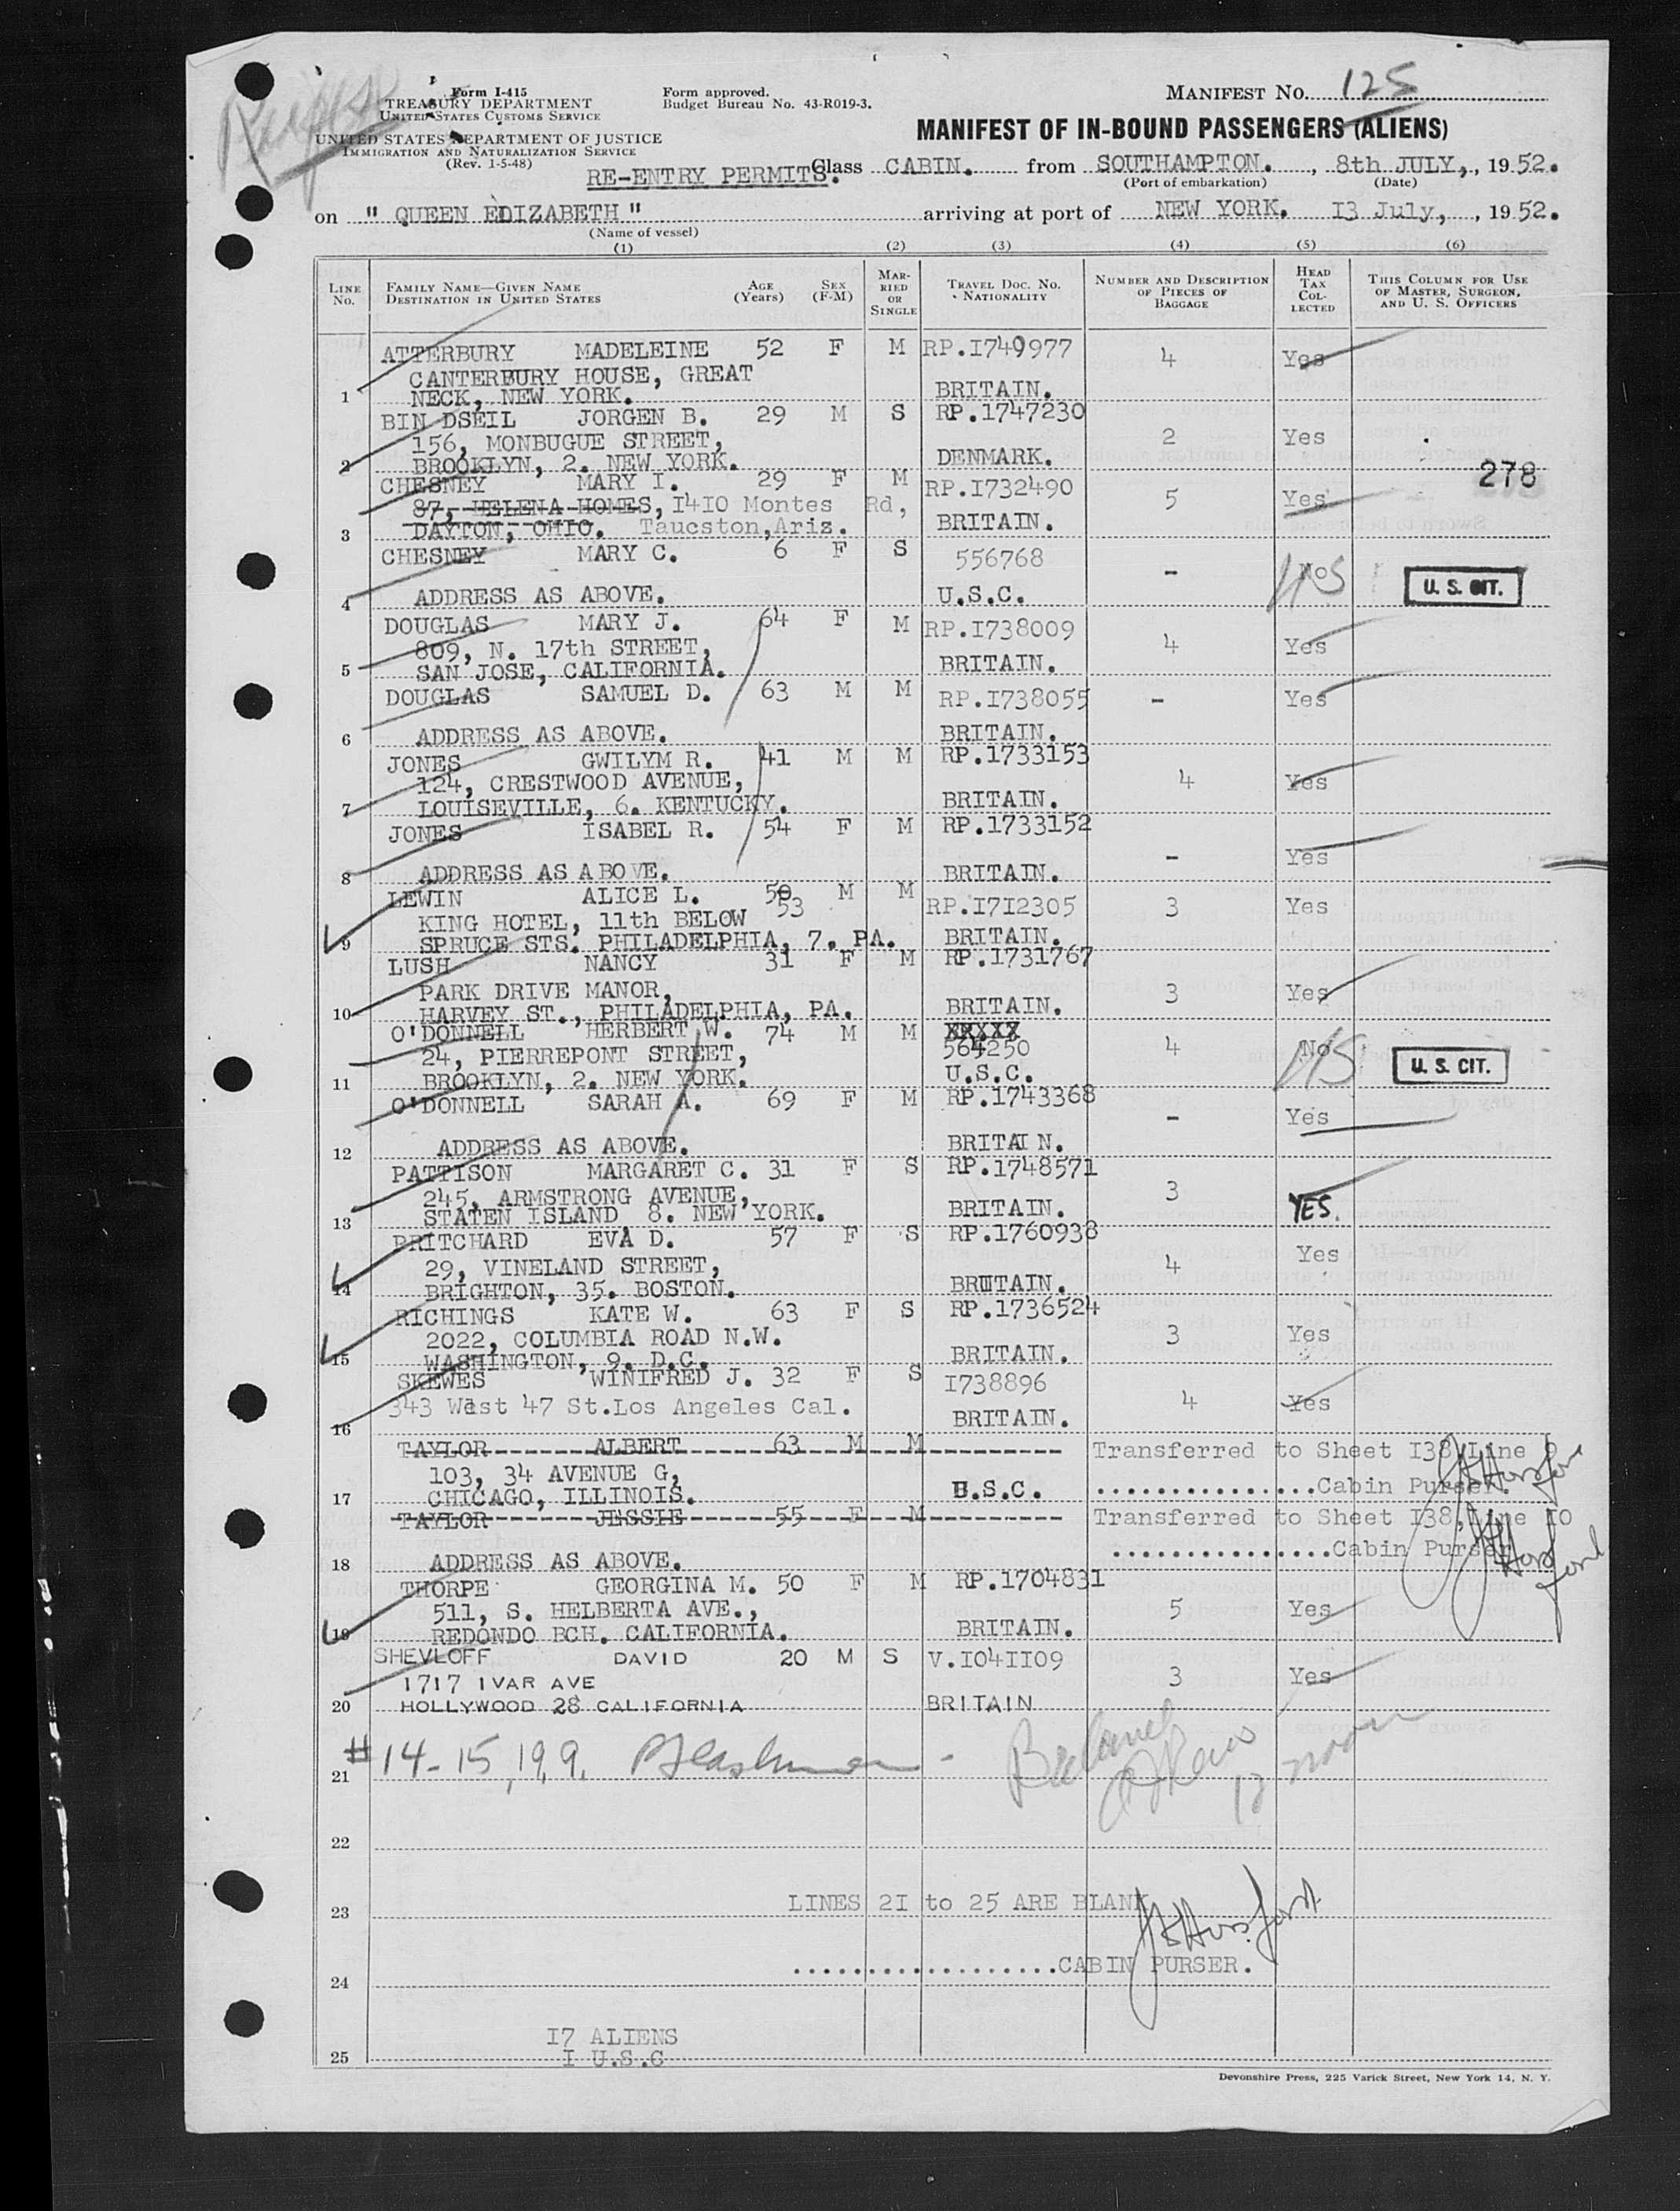 Form I-415
TREASURY DEPARTMENT
UNITED STATES CUSTOMS SERVICE
UNITED STATES DEPARTMENT OF JUSTICE
IMMIGRATION AND NATURALIZATION SERVICE
(Rev. 1-5-48)
Form approved.
Budget Bureau No. 43-R019-3.
MANIFEST NO. 125
MANIFEST OF IN-BOUND PASSENGERS (ALIENS)
RE-ENTRY PERMITS. Class CABIN. from SOUTHAMPTON. , 8th JULY, , 1952.
(Port of embarkation) (Date)
on " QUEEN EDIZABETH " arriving at port of NEW YORK. I3 July, , 1952.
(Name of vessel)
(1) (2) (3) (4) (5) (6)
LINE NO. FAMILY NAME—GIVEN NAME DESTINATION IN UNITED STATES AGE (Years) SEX (F-M) MARRIED OR SINGLE TRAVEL DOC. NO. NATIONALITY NUMBER AND DESCRIPTION OF PIECES OF BAGGAGE HEAD TAX COLLECTED THIS COLUMN FOR USE OF MASTER, SURGEON, AND U. S. OFFICERS
ATTERBURY MADELEINE 52 F M RP.I749977 4 Yes
CANTERBURY HOUSE, GREAT
1 NECK, NEW YORK. BRITAIN.
BIN DSEIL JORGEN B. 29 M S RP.1747230
156, MONBUGUE STREET, 2 Yes
2 BROOKLYN, 2. NEW YORK. DENMARK.
278
CHESNEY MARY I. 29 F M RP.I732490
87, HELENA HOMES, I4IO Montes Rd, 5 Yes
3 DAYTON, OHIO. Taucston,Ariz. BRITAIN.
CHESNEY MARY C. 6 F S 556768
- No U. S. CIT.
4 ADDRESS AS ABOVE. U.S.C.
DOUGLAS MARY J. 64 F M RP.I738009
809, N. 17th STREET, 4 Yes
5 SAN JOSE, CALIFORNIA. BRITAIN.
DOUGLAS SAMUEL D. 63 M M RP.I738055 - Yes
6 ADDRESS AS ABOVE. BRITAIN.
JONES GWILYM R. 41 M M RP.1733153
124, CRESTWOOD AVENUE, 4 Yes
7 LOUISEVILLE, 6. KENTUCKY. BRITAIN.
JONES ISABEL R. 54 F M RP.1733152
- Yes
8 ADDRESS AS ABOVE. BRITAIN.
LEWIN ALICE L. 50 53 M M RP.I7I2305 3 Yes
KING HOTEL, 11th BELOW
9 SPRUCE STS. PHILADELPHIA, 7. PA. BRITAIN.
LUSH NANCY 31 F M RP.1731767
PARK DRIVE MANOR, 3 Yes
10 HARVEY ST., PHILADELPHIA, PA. BRITAIN.
O'DONNELL HERBERT W. 74 M M XXXXX
24, PIERREPONT STREET, 564250 4 No U. S. CIT.
11 BROOKLYN, 2. NEW YORK. U.S.C.
O'DONNELL SARAH A. 69 F M RP.1743368
- Yes
12 ADDRESS AS ABOVE. BRITAI N.
PATTISON MARGARET C. 31 F S RP.1748571
245, ARMSTRONG AVENUE, 3 YES.
13 STATEN ISLAND 8. NEW YORK. BRITAIN.
PRITCHARD EVA D. 57 F S RP.1760938
29, VINELAND STREET, 4 Yes
14 BRIGHTON, 35. BOSTON. BRITAIN.
RICHINGS KATE W. 63 F S RP.1736524
2022, COLUMBIA ROAD N.W. 3 Yes
15 WASHINGTON, 9. D.C. BRITAIN.
SKEWES WINIFRED J. 32 F S I738896
343 West 47 St.Los Angeles Cal. 4 Yes
16 BRITAIN.
TAYLOR ALBERT 63 M M Transferred to Sheet I38, Line 9
103, 34 AVENUE G,
17 CHICAGO, ILLINOIS. U.S.C. ...............Cabin Purser.
TAYLOR JESSIE 55 F M Transferred to Sheet I38, Line IO
...............Cabin Purser
18 ADDRESS AS ABOVE.
THORPE GEORGINA M. 50 F M RP.1704831
511, S. HELBERTA AVE., 5 Yes
19 REDONDO BCH. CALIFORNIA. BRITAIN.
SHEVLOFF DAVID 20 M S V.IO4II09
1717 IVAR AVE 3 Yes
20 HOLLYWOOD 28 CALIFORNIA BRITAIN
21 #14-15, 19, 9.
22
23 LINES 2I to 25 ARE BLANK
24 ..................CABIN PURSER.
I7 ALIENS
25 I U.S.C
Devonshire Press, 225 Varick Street, New York 14, N. Y.